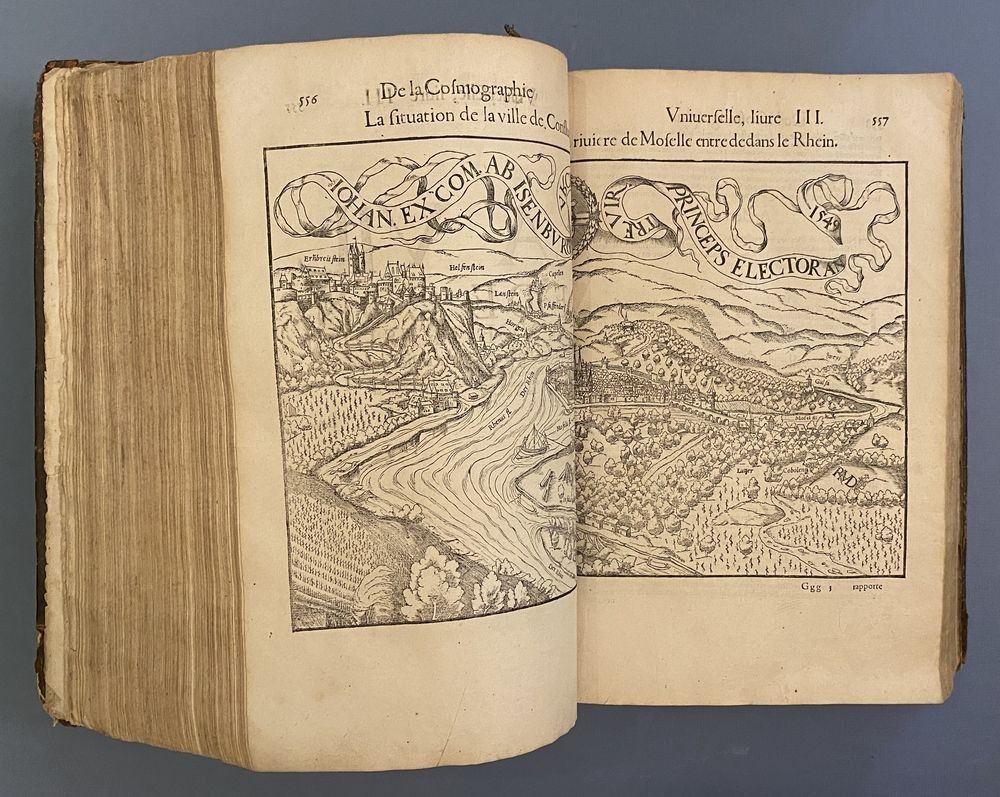 556
De la Cosmographie
La situation de la ville de
IOHAN. EX COM. AB ISENBVR
Erēbreitstein
Helfenstein
Capelen
Lanstein
Horigen
Rhenus fl
Vniuerselle, liure III.
557
riuiere de Moselle entre dedans le Rhein.
TREVIR
PRINCEPS ELECTORA
1549
Gulß
Mosel fl.
Luzer
Cobolentz
RMD
Ggg 3
rapporte